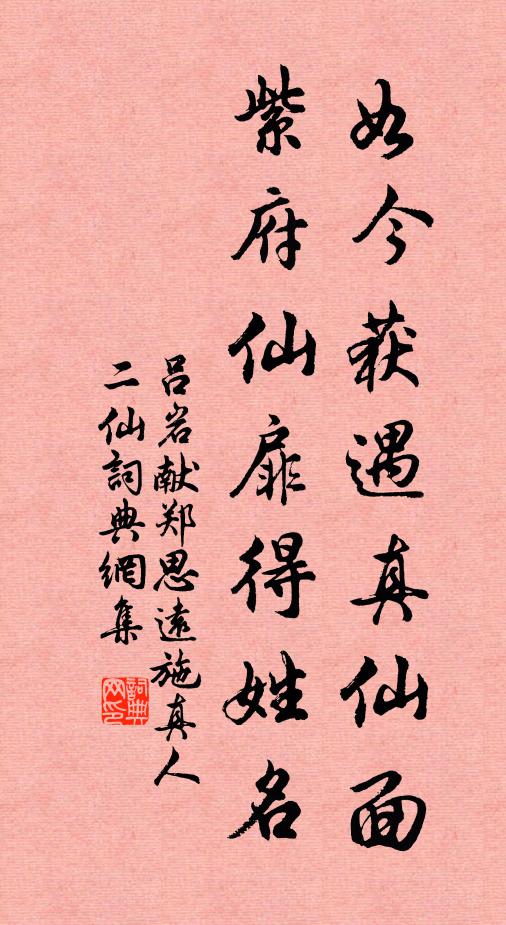 如今获遇真仙面
紫府仙扉得姓名
吕岩献郑思远施真人
二仙詞典網集
詞典
网印